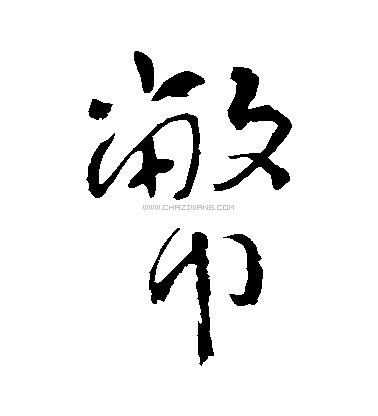 幣
WWW.CHAZIWANG.COM